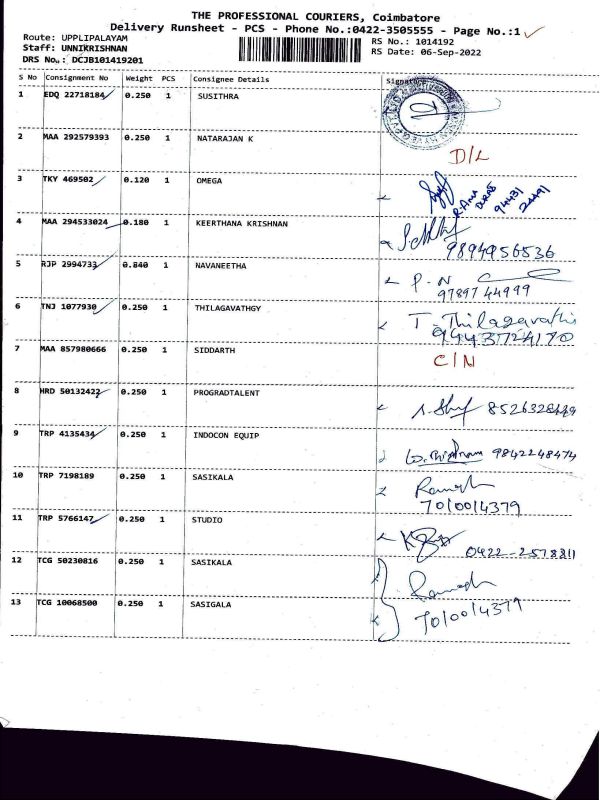 THE PROFESSIONAL COURIERS, Coimbatore
Delivery Runsheet - PCS - Phone No.:0422-3505555 - Page No.:1
Route: UPPLIPALAYAM
RS No.: 1014192
Staff: UNNIKRISHNAN
RS Date: 06-Sep-2022
DRS No.: DCJB101419201
S No Consignment No Weight PCS Consignee Details Signature
1 EDQ 22718184 0.250 1 SUSITHRA
2 MAA 292579393 0.250 1 NATARAJAN K
D/L
3 TKY 469502 0.120 1 OMEGA
94431
4 MAA 294533024 0.180 1 KEERTHANA KRISHNAN
9894956536
5 RJP 2994733 0.840 1 NAVANEETHA
P. N
97897 44999
6 TNJ 1077930 0.250 1 THILAGAVATHGY
T. Thilagavathi
9443724170
7 MAA 857980666 0.250 1 SIDDARTH
C/N
8 HRD 50132422 0.250 1 PROGRADTALENT
9 TRP 4135434 0.250 1 INDOCON EQUIP
9842248474
10 TRP 7198189 0.250 1 SASIKALA
Ramesh
7010014379
11 TRP 5766147 0.250 1 STUDIO
0422-2578811
12 TCG 50230816 0.250 1 SASIKALA
Ramesh
7010014379
13 TCG 10068500 0.250 1 SASIGALA